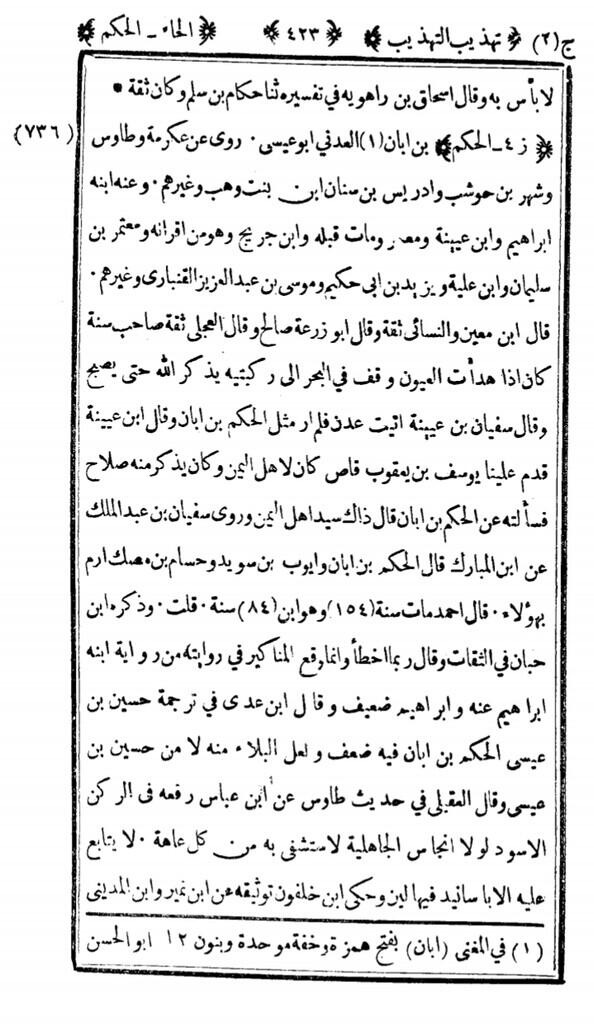 ج(٢) ﴿ تهذيب التهذيب ﴾ ﴿ ٤٢٣ ﴾ ﴿ الحاء ـ الحكم ﴾
لا بأس به وقال اسحاق بن راهويه في تفسيره ثنا حكام بن سلم وكان ثقة *
﴿ ز ٤ ـ الحكم ﴾ بن ابان (١) العدني ابو عيسى . روى عن عكرمة وطاوس (٧٣٦)
وشهر بن حوشب وادريس بن سنان ابن بنت وهب وغيرهم . وعنه ابنه
ابراهيم وابن عيينة ومعمر ومات قبله وابن جريج وهو من اقرانه ومعتمر بن
سليمان وابن علية ويزيد بن ابي حكيم وموسى بن عبد العزيز القنبارى وغيرهم .
قال ابن معين والنسائى ثقة وقال ابو زرعة صالح وقال العجلي ثقة صاحب سنة
كان اذا هدأت العيون وقف في البحر الى ركبتيه يذكر الله حتى يصبح
وقال سفيان بن عيينة اتيت عدن فلم ار مثل الحكم بن ابان وقال ابن عيينة
قدم علينا يوسف بن يعقوب قاص كان لاهل اليمن وكان يذكر منه صلاح
فسألته عن الحكم بن ابان قال ذاك سيد اهل اليمن وروى سفيان بن عبد الملك
عن ابن المبارك قال الحكم بن ابان وايوب بن سويد وحسام بن مصك ارم
بهؤلاء . قال احمد مات سنة (١٥٤) وهو ابن (٨٤) سنة . قلت . وذكره ابن
حبان في الثقات وقال ربما اخطأ وانما وقع المناكير في روايته من رواية ابنه
ابراهيم عنه وابراهيم ضعيف وقال ابن عدى في ترجمة حسين بن
عيسى الحكم بن ابان فيه ضعف ولعل البلاء منه لا من حسين بن
عيسى وقال العقيلي في حديث طاوس عن ابن عباس رفعه فى الركن
الاسود لولا انجاس الجاهلية لاستشفى به من كل عاهة . لا يتابع
عليه الا باسانيد فيها لين وحكى ابن خلفون توثيقه عن ابن نمير وابن المدينى
(١) في المغنى (ابان) بفتح همزة وخفة موحدة وبنون ١٢ ابو الحسن